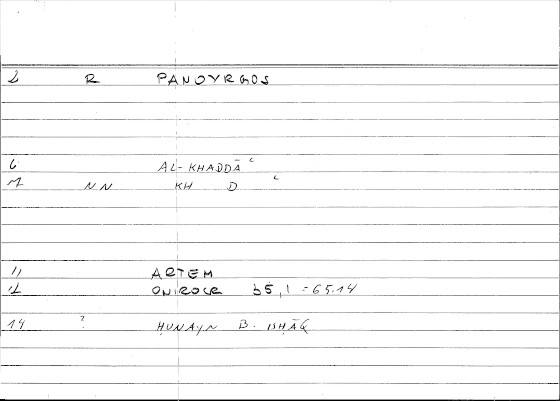 2 R PANOYRGOS
6 AL-KHADDĀʿ
7 NN KH D ʿ
11 ARTEM
12 ONIROCR 35,1 = 65.14
14 ? ḤUNAYN B. ISḤĀQ